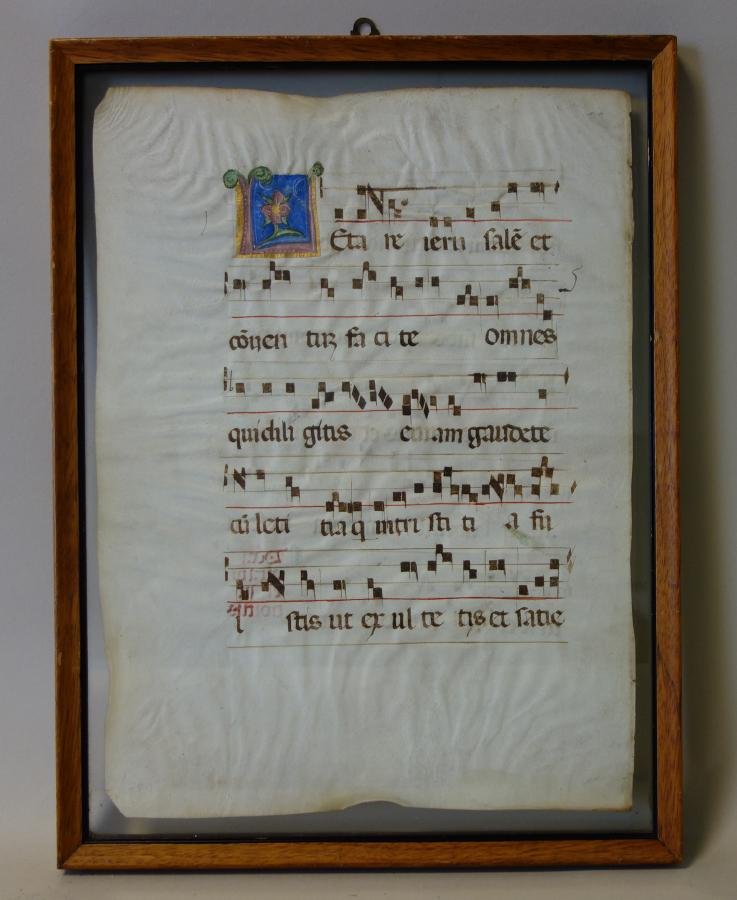 LEta re ierłi salē et
cōuen tuꝫ fa ci te omnes
qui dili gitis e am gaudete
cū leti tia q intri sti ti a fu
i stis ut ex ul te tis et satie